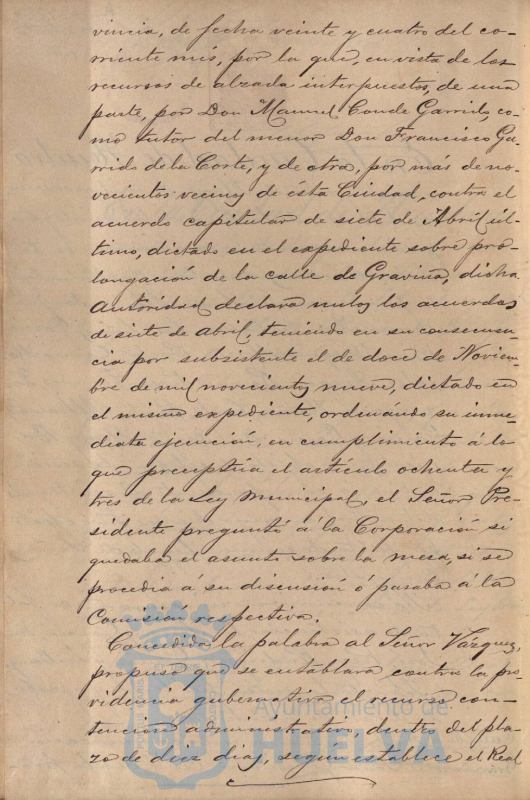 vincia, de fecha veinte y cuatro del co-
rriente mes, por la que, en vista de los
recursos de alzada interpuestos, de una
parte, por Don Manuel Conde Garrido, co-
mo tutor del menor Don Francisco Ga-
rrido de la Corte, y de otra, por más de no-
vecientos vecinos de ésta Ciudad, contra el
acuerdo capitular de siete de Abril úl-
timo, dictado en el expediente sobre pro-
longación de la calle de Gravina, dicha
Autoridad declara nulos los acuerdos
de siete de Abril, teniendo en su consecuen-
cia por subsistente el de doce de Noviem-
bre de mil novecientos nueve, dictado en
el mismo expediente, ordenándo su inme-
diata ejecución, en cumplimiento á lo
que preceptúa el artículo ochenta y
tres de la Ley Municipal, el Señor Pre-
sidente preguntó á la Corporación si
quedaba el asunto sobre la mesa, si se
procedia á su discusión ó pasaba á la
Comisión respectiva.
Concedida la palabra al Señor Vázquez,
propuso que se entablara contra la pro-
videncia gubernativa el recurso con-
tencioso administrativo, dentro del pla-
zo de diez dias, segun establece el Real
Ayuntamiento de
HUELVA